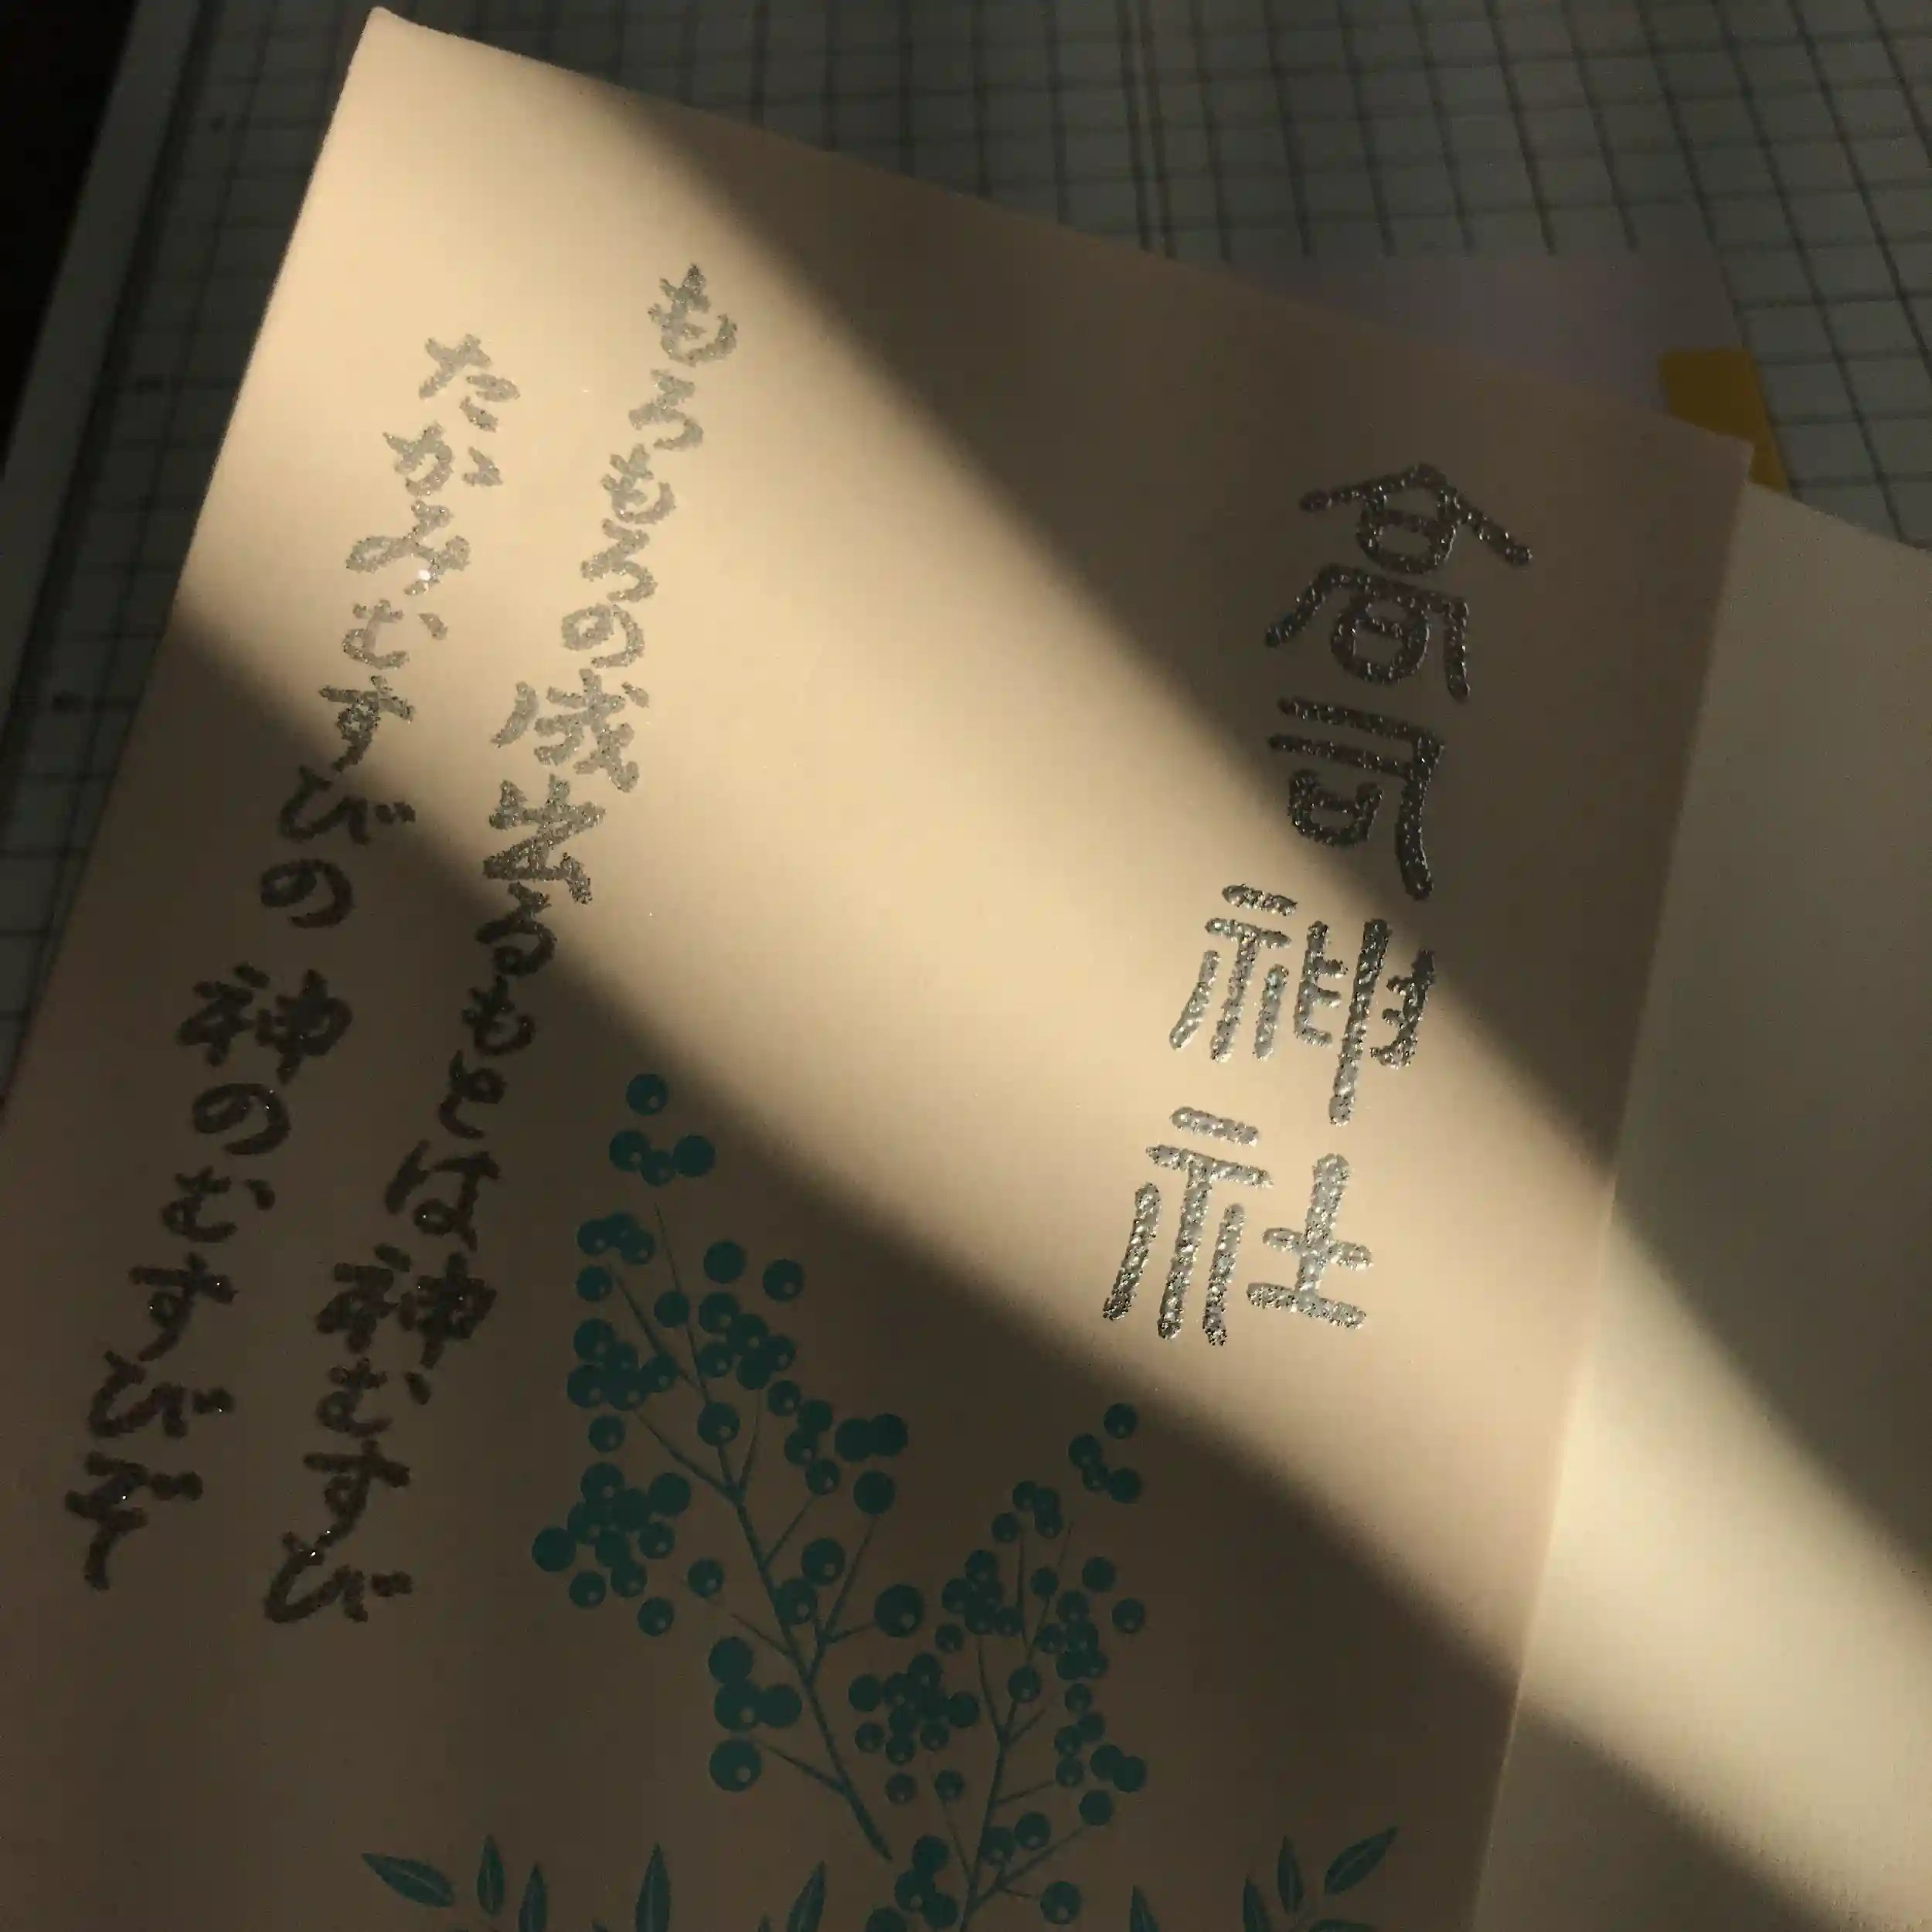 高司神社
もろもろの成出るもとは神むすび
たかみむすびの 神のむすびぞ